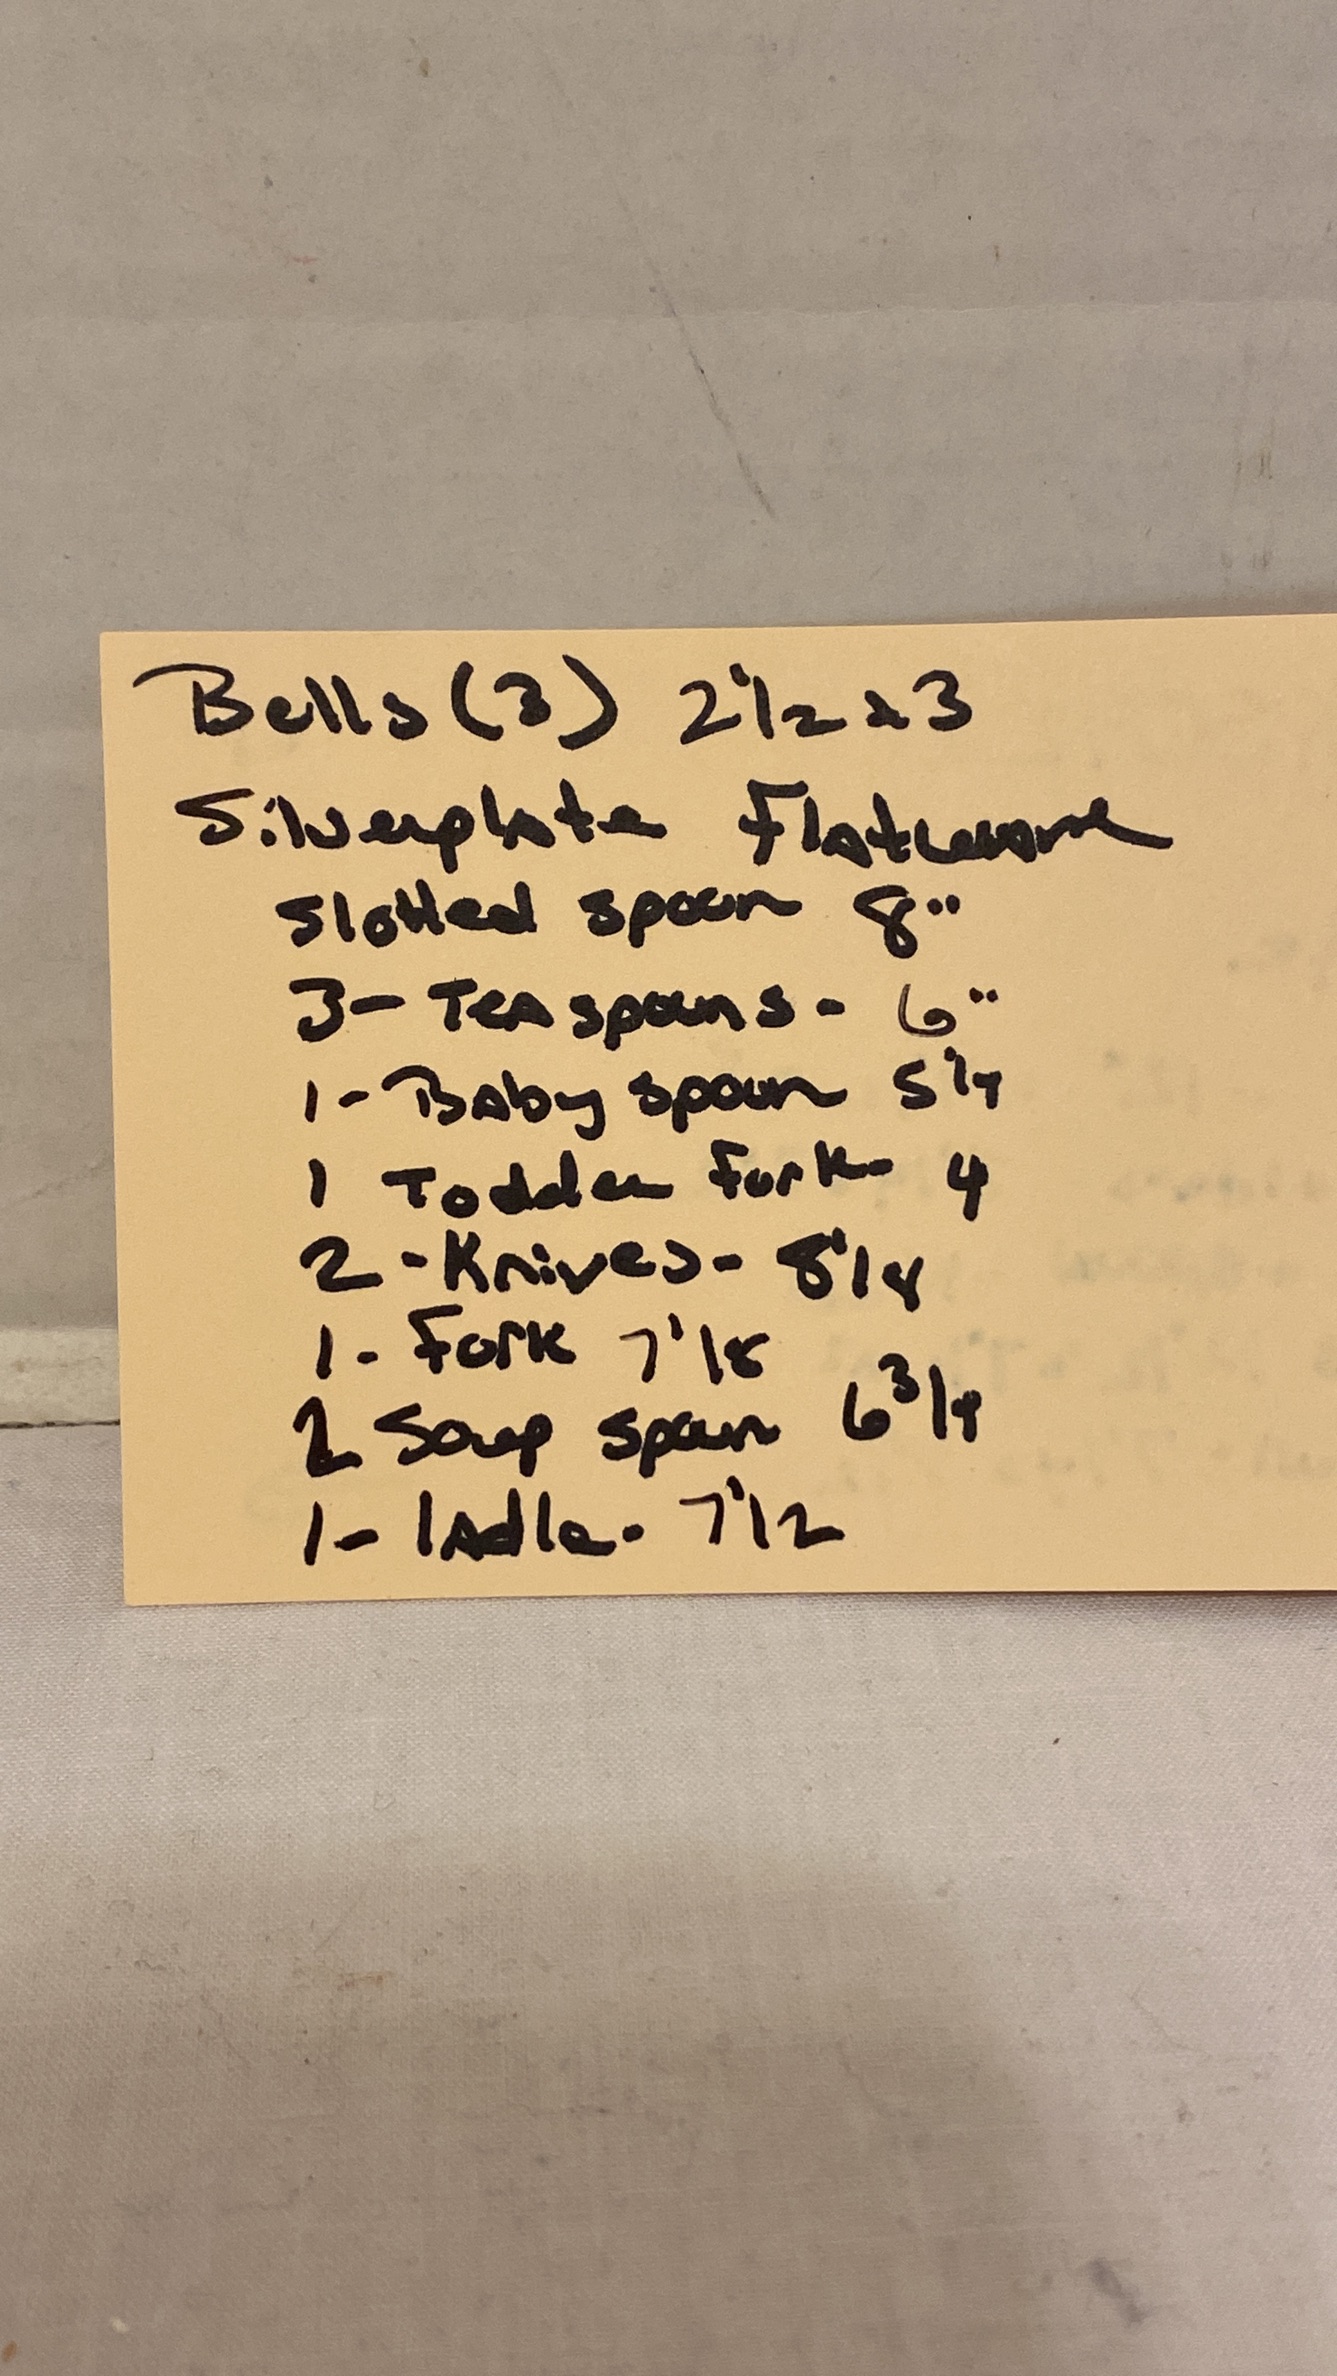 Bells (3) 2 1/2 x 3
Silverplate Flatware
Slotted spoon 8"
3- Teaspoons - 6"
1- Baby spoon 5 1/4
1 Toddler Fork- 4
2 - Knives - 8 1/8
1- Fork 7 1/8
2 Soup spoon 6 3/4
1- ladle - 7 1/2